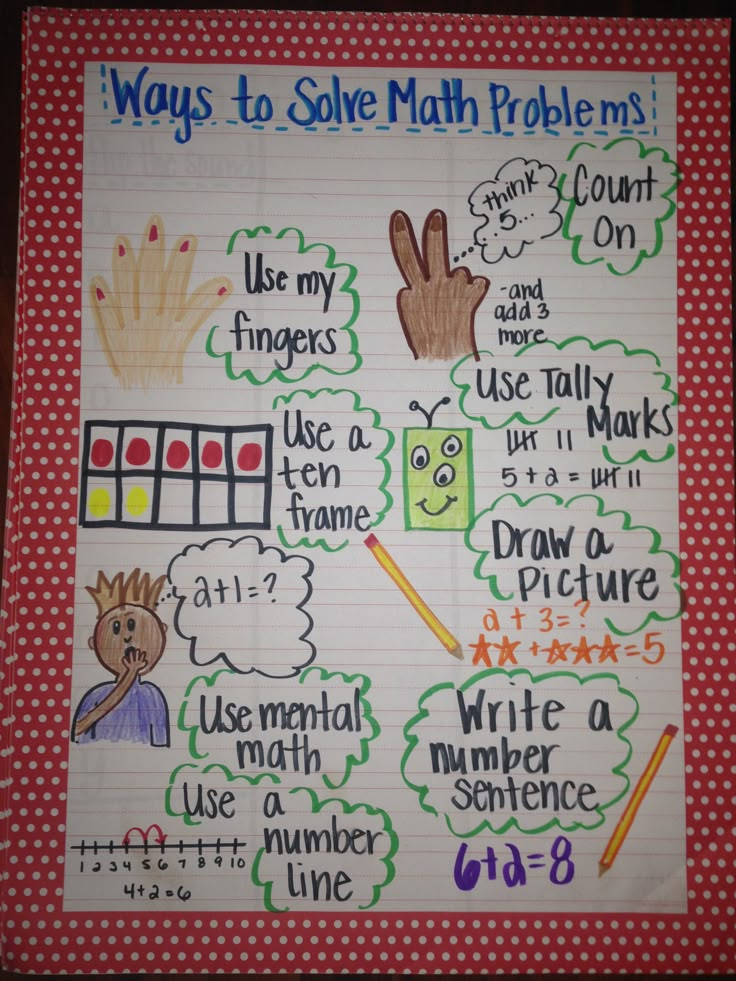 Ways to Solve Math Problems
Use my
fingers
think
5...
Count
On
-and
add 3
more
Use a
ten
frame
Use Tally
Marks
5+2=
Draw a
Picture
2+3=?
+=5
2+1=?
Use mental
math
Write a
number
sentence
6+2=8
Use a
number
line
1 2 3 4 5 6 7 8 9 10
4+2=6